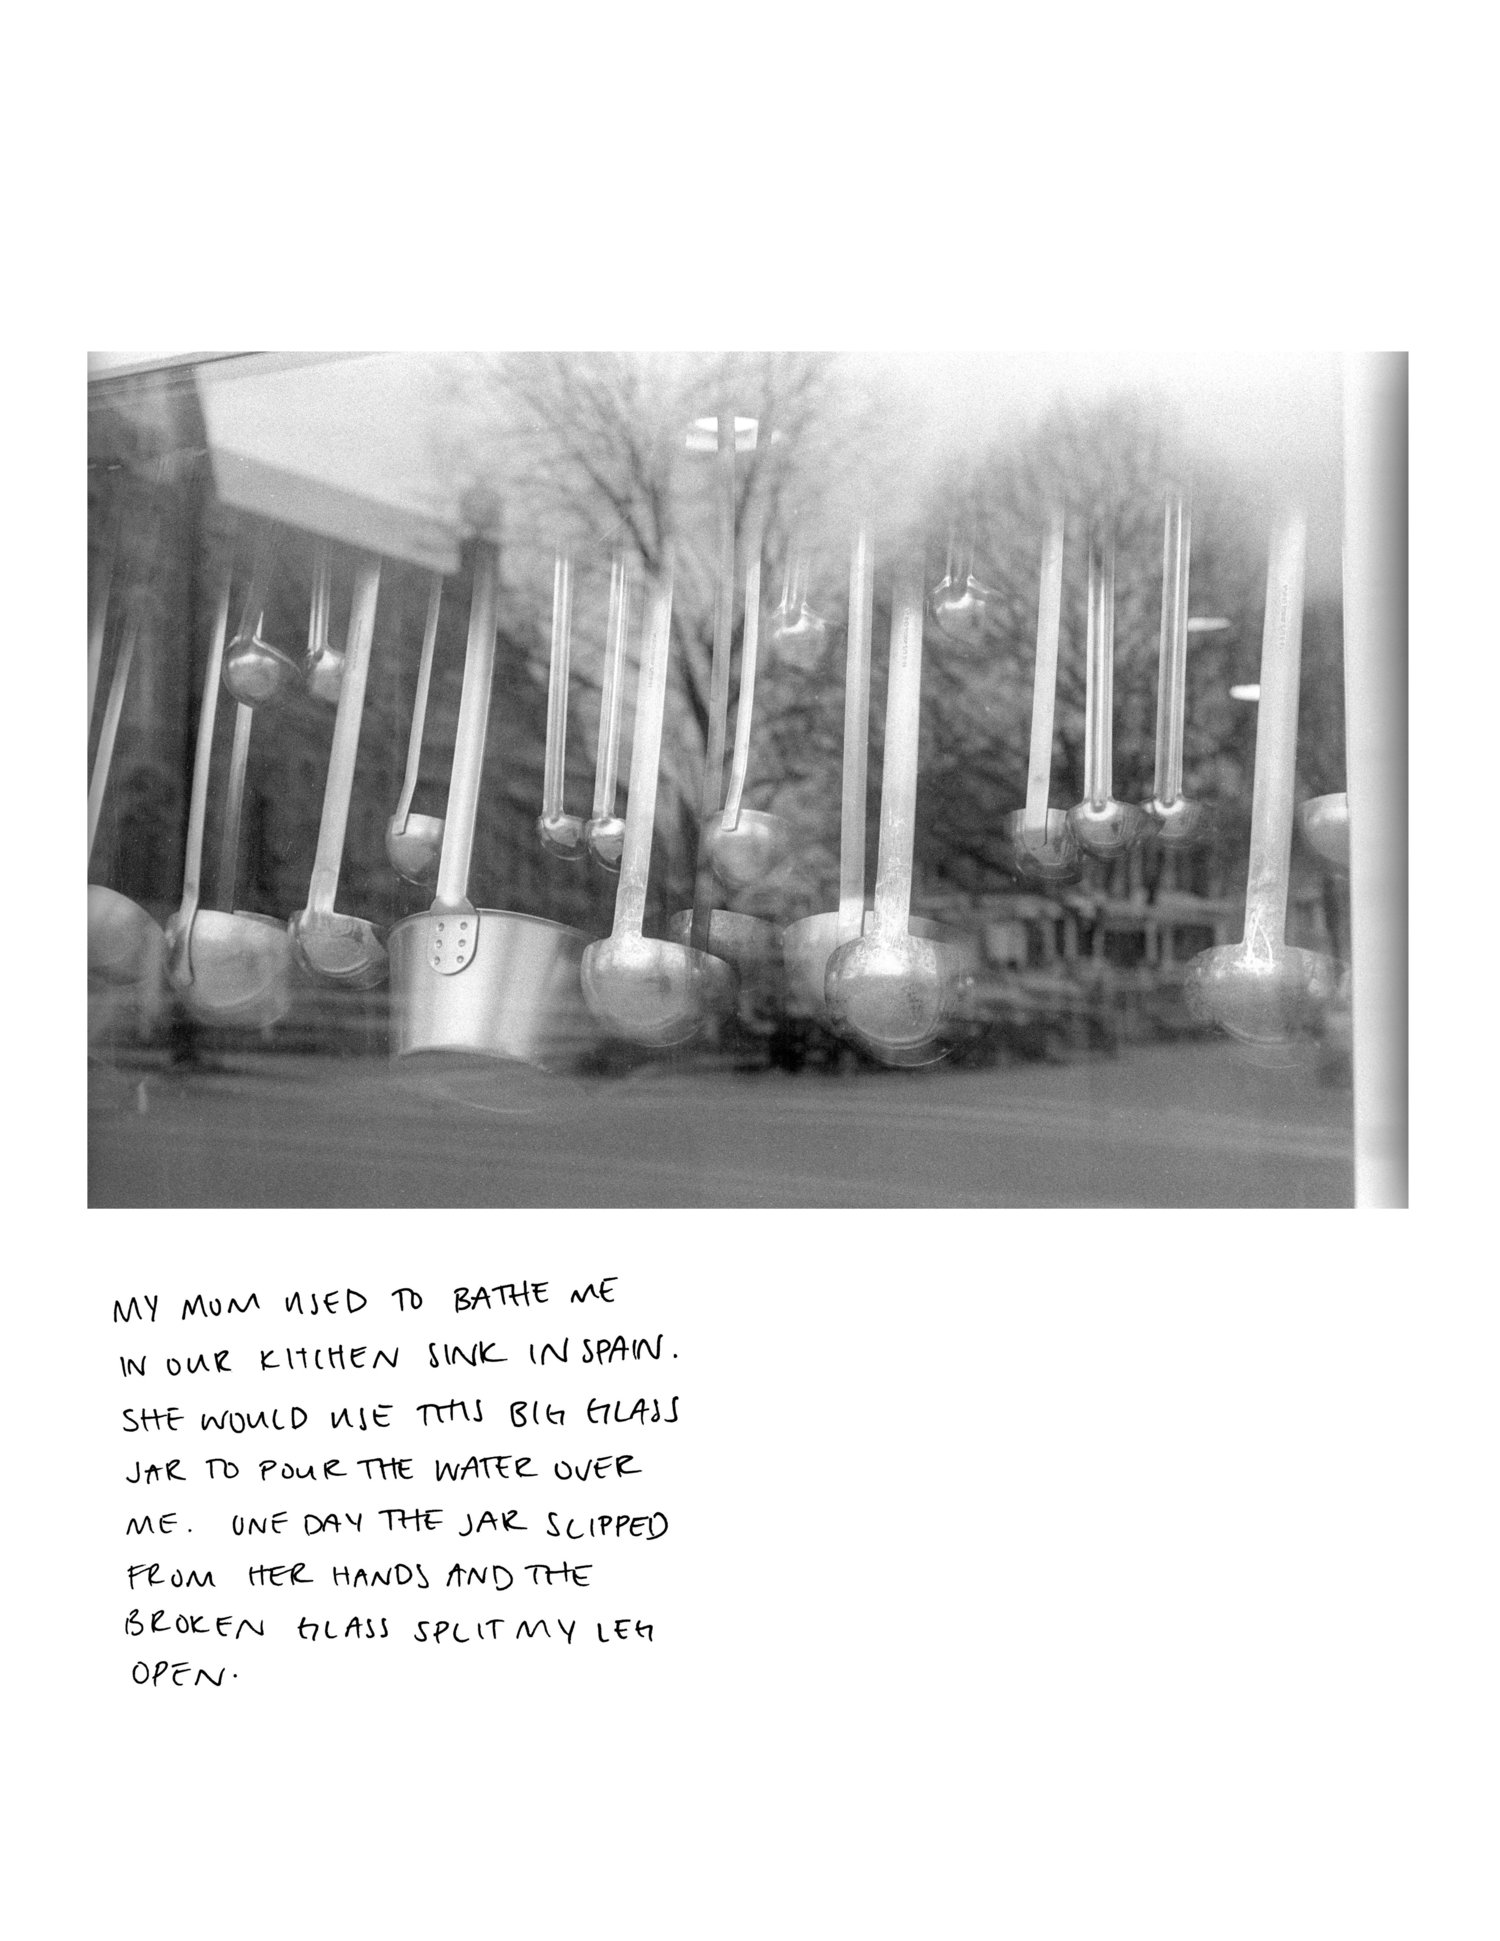 MY MUM USED TO BATHE ME
IN OUR KITCHEN SINK IN SPAIN.
SHE WOULD USE THIS BIG GLASS
JAR TO POUR THE WATER OVER
ME. ONE DAY THE JAR SLIPPED
FROM HER HANDS AND THE
BROKEN GLASS SPLIT MY LEG
OPEN.